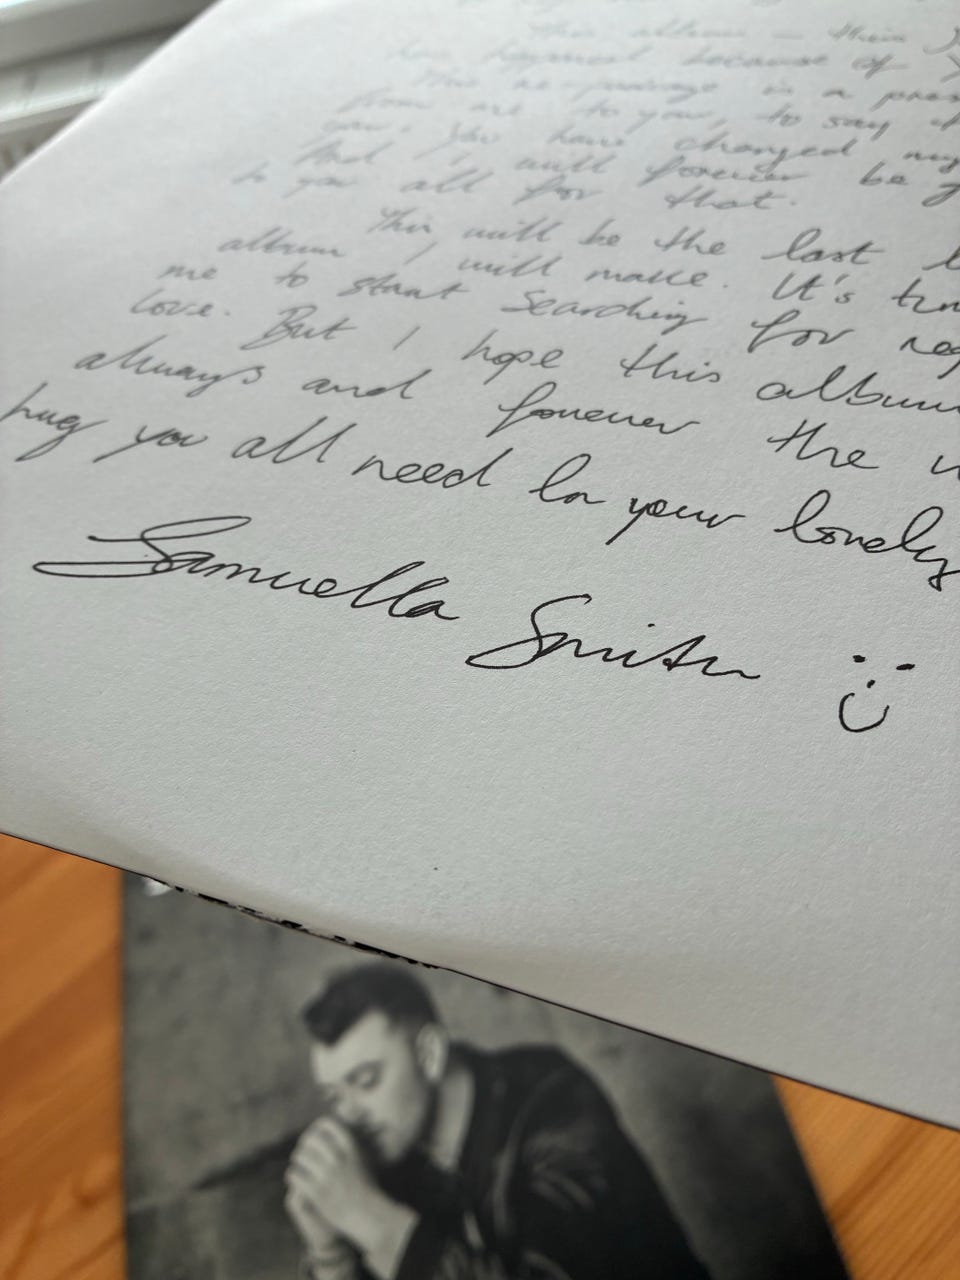 this album – this
has happened because of
This re-package is a
from me to you, to say
you. You have changed my
And I will forever be
to you all for that.
This will be the last
album I will make. It's
me to start searching for
love. But I hope this album
always and forever the
hug you all need in your lonely
Samuella Smith